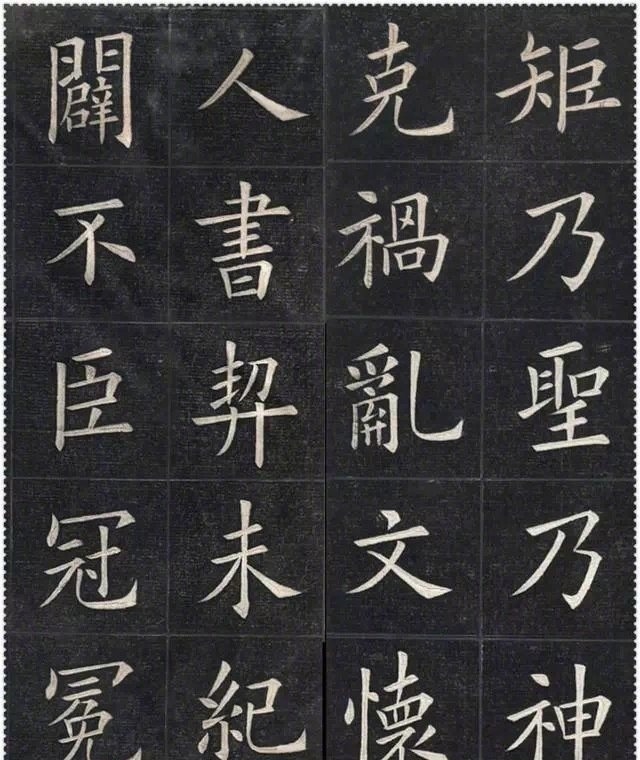 矩乃聖乃神
克禍亂文懷
人書契未紀
闢不臣冠冕